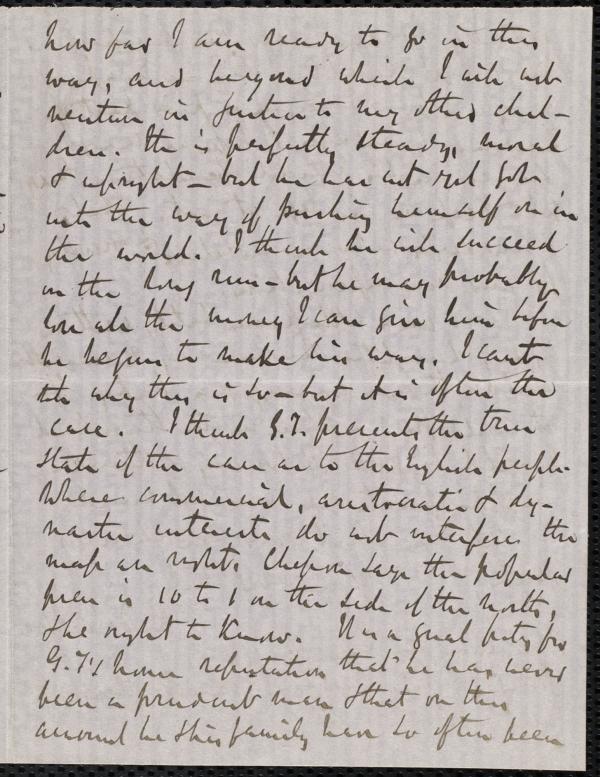 how far I am ready to go in this
way, and beyond which I will not
venture in justice to my other chil-
dren. He is perfectly steady, moral
& upright – but he has not yet got
into the way of pushing himself on in
the world. I think he will succeed
in the long run – but he may probably
lose all the money I can give him before
he begins to make his way. I can't
why this is so – but it is often the
case. I think G.T. presents the true
state of the case as to the English people.
Where commercial, aristocratic & dy-
nastic interests do not interfere the
mass are right. Chesson says the popular
press is 10 to 1 on the side of the north,
& he ought to know. It is a great pity for
G.T's home reputation that he has never
been a prudent man & that on this
account he & his family have so often been